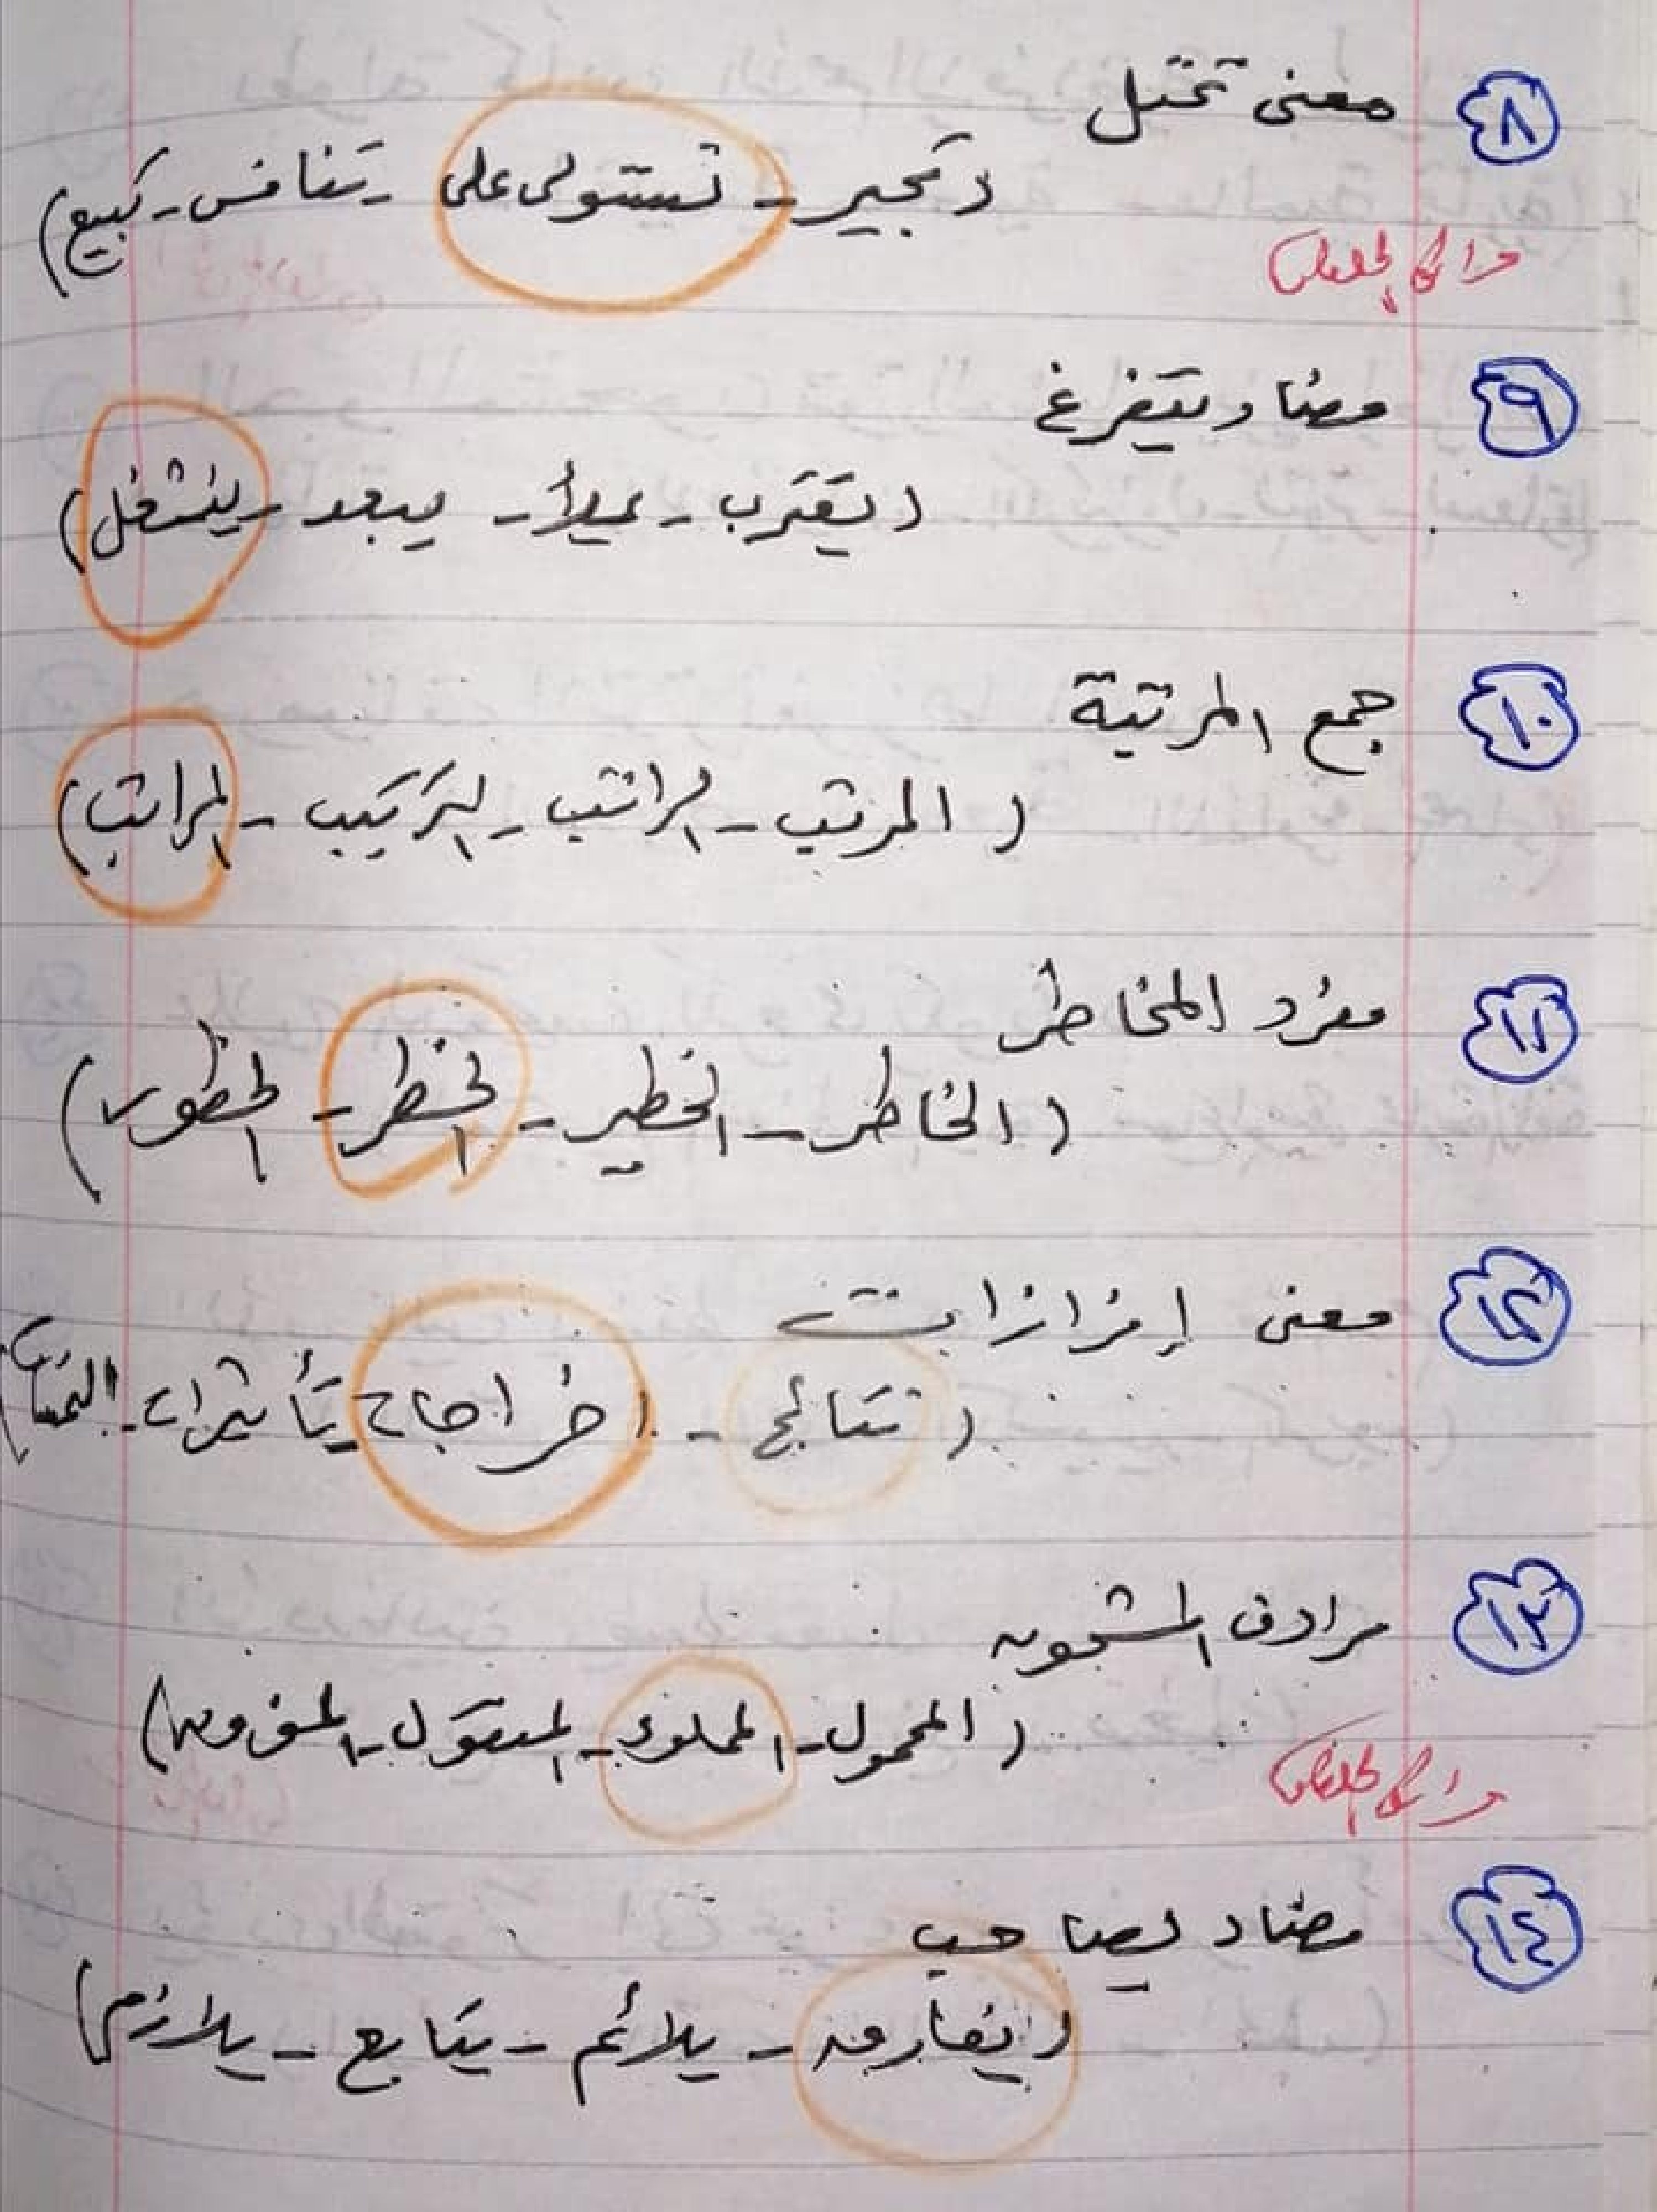 ٨ معنى تحتل
( تجبر - تستولى على - تتنافس - تبيع )
٩ مضاد يتفرغ
( يقترب - يملأ - يبعد - ينشغل )
١٠ جمع المرتبة
( المرتب - الراتب - التركيب - المراتب )
١١ مفرد المخاطر
( الخاطر - الخطير - الخطر - الخطور )
١٢ معنى إفرازات
( نتائج - اخراجات - تأثيرات -
١٣ مرادف المشحون
( المحمول - المملوء - المنقول -
١٤ مضاد يصاحب
( يفارق - يلائم - يتابع - يلازم )